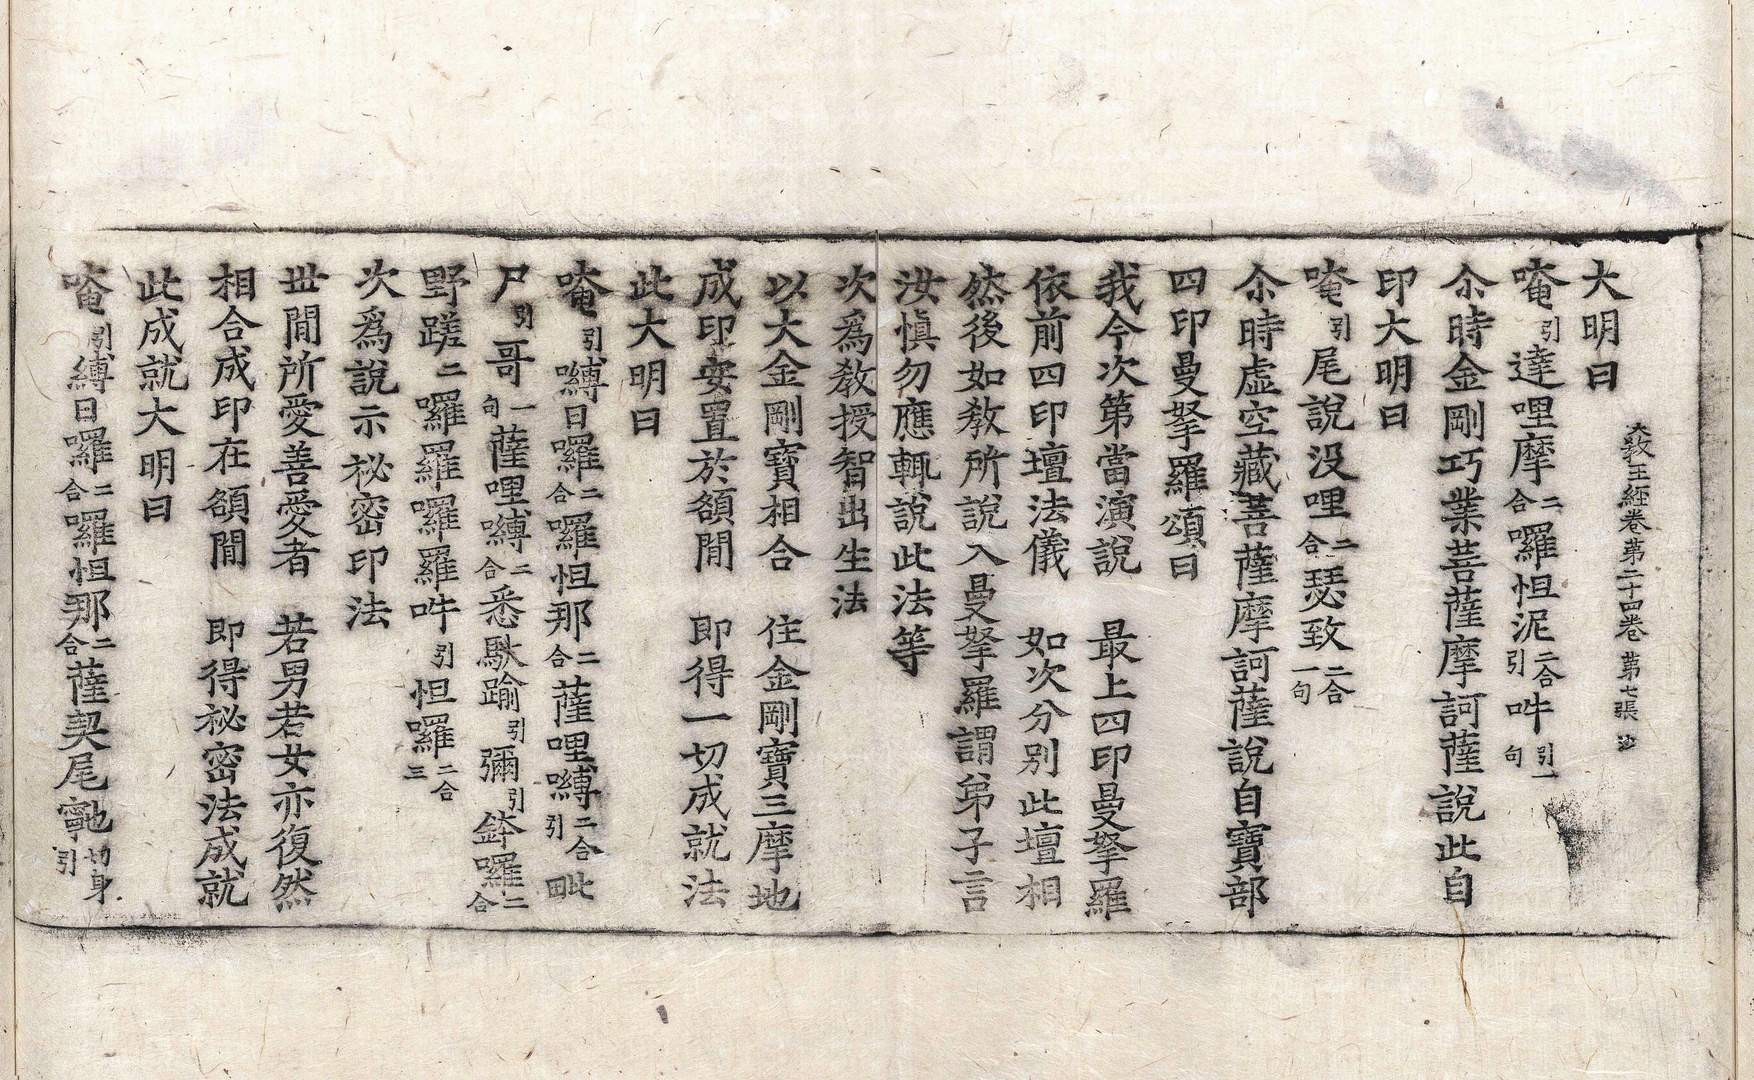 大教王經卷第二十四卷 第七張 沙
大明曰
唵引達哩摩二合囉怛泥二合引吽引一句
尒時金剛巧業菩薩摩訶薩說此自
印大明曰
唵引尾說没哩二合瑟致二合一句
尒時虛空藏菩薩摩訶薩說自寶部
四印曼拏羅頌曰
我今次第當演說　最上四印曼拏羅
依前四印壇法儀　如次分別此壇相
然後如教所說入曼拏羅謂弟子言
汝愼勿應輒說此法等
次爲教授智出生法
以大金剛寶相合　住金剛寶三摩地
成印安置於額閒　即得一切成就法
此大明曰
唵引嚩日囉二合囉怛那二合薩哩嚩二合引毗
尸引哥一句薩哩嚩二合悉馱踰引彌引鉢囉二合
野蹉二囉羅囉羅吽引怛囉二合三
次爲說示祕密印法
丗閒所愛善愛者　若男若女亦復然
相合成印在額閒　即得祕密法成就
此成就大明曰
唵引嚩日囉二合囉怛那二合薩契尾寧也切身引